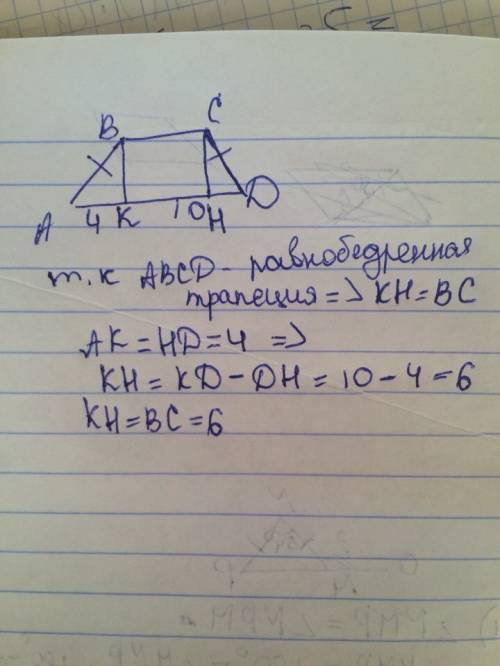 B C
A 4 K 10 H D
т.к ABCD - равнобедренная
трапеция => KH = BC
AK = HD = 4 =>
KH = KD - DH = 10 - 4 = 6
KH = BC = 6